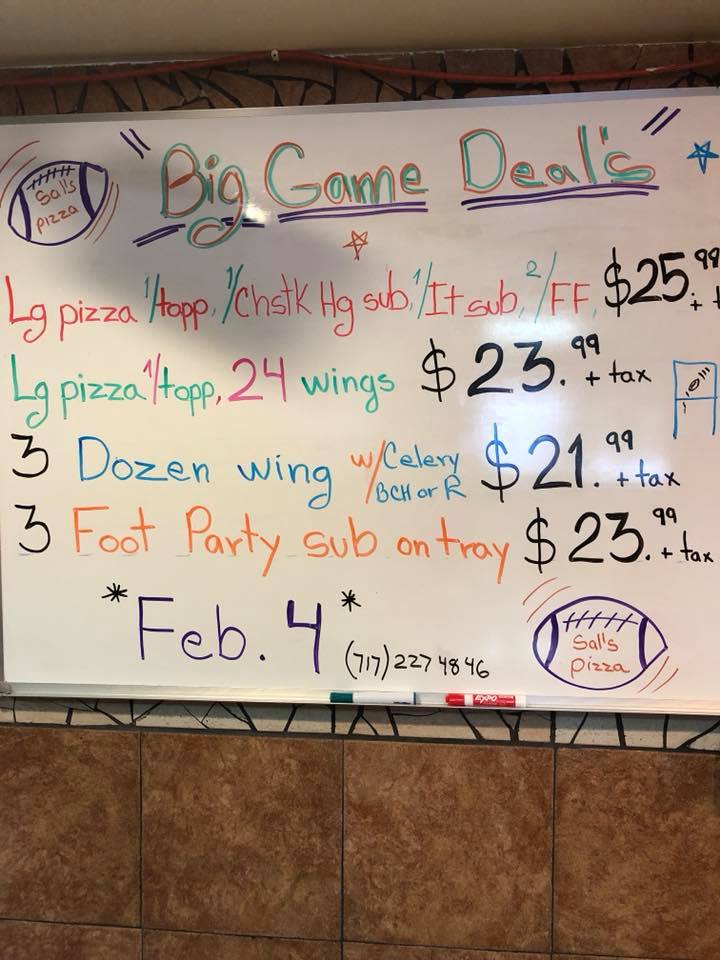 Sal's
pizza
"Big Game Deal's"
Lg pizza 1/topp, 1/Chstk Hg sub, 1/It sub, 2/FF, $25.99 + t
Lg pizza 1/topp, 24 wings $23.99 + tax
3 Dozen wing w/Celery $21.99 + tax
BCH or R
3 Foot Party sub on tray $23.99 + tax
*Feb. 4* (717) 227 4846
Sal's
pizza
EXPO